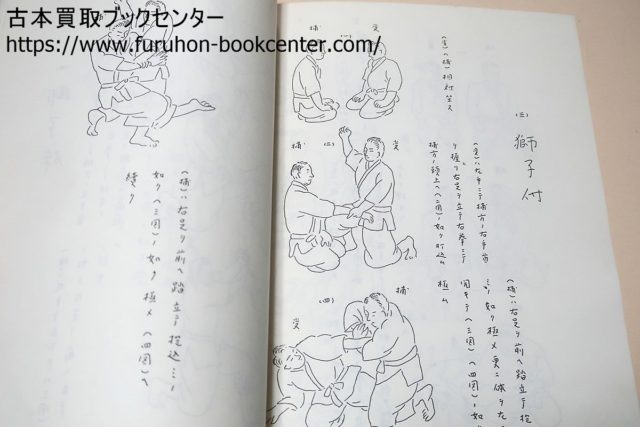 古本買取ブックセンター
https://www.furuhon-bookcenter.com/
(三) 獅子付
捕 (一) 受
(受)(捕)相対坐ス
捕 (二) 受
(受)ハ左手ニテ捕方ノ右手首
ヲ握リ右足ヲ立テ右拳ニテ
捕方ノ頭上ヘ(二図)ノ如ク打込ム
(捕)ハ右足ヲ前ヘ踏立テ
如ク極メ更ニ
(三図)(四図)ノ如
極ム
(四) 捕
受
(捕)ハ右足ヲ前ヘ踏立テ
如ク(三図)ノ如ク極メ(四図)ヘ
続ク